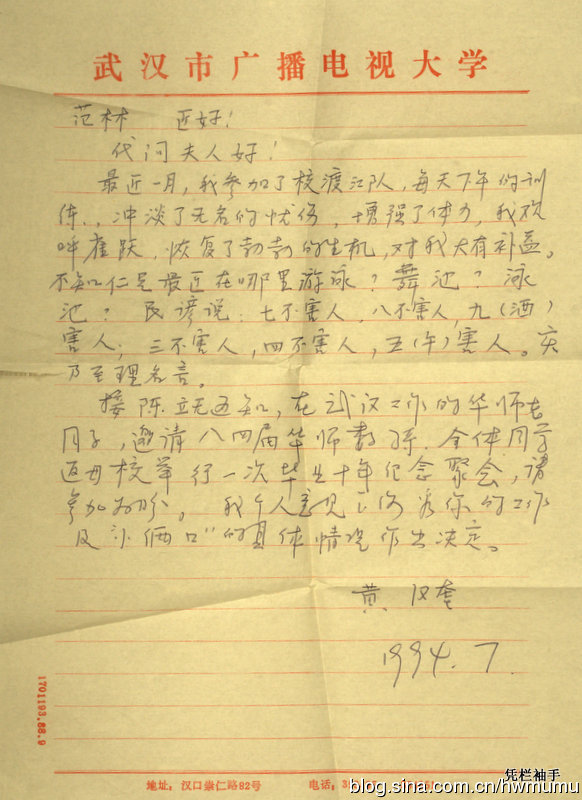 武汉市广播电视大学
范林 近好！
代问夫人好！
最近一月，我参加了校渡江队，每天下午的训
练，冲淡了无名的忧伤，增强了体力，我欢
呼雀跃，恢复了勃勃的生机，对我大有补益。
不知仁兄最近在哪里游泳？舞池？泳
池？民谚说：七不害人，八不害人，九（酒）
害人；三不害人，四不害人，五（午）害人。实
乃至理名言。
接陈立无通知，在武汉工作的华师老
同学，邀请八四届华师数系全体同学
返母校举行一次毕业十年纪念聚会，请
参加为盼。我个人意见，你的工作
及"俩口"的具体情况作出决定。
黄汉
1994.7.
1701193.88.9
地址：汉口崇仁路82号 电话：
凭栏袖手
blog.sina.com.cn/hwmumu